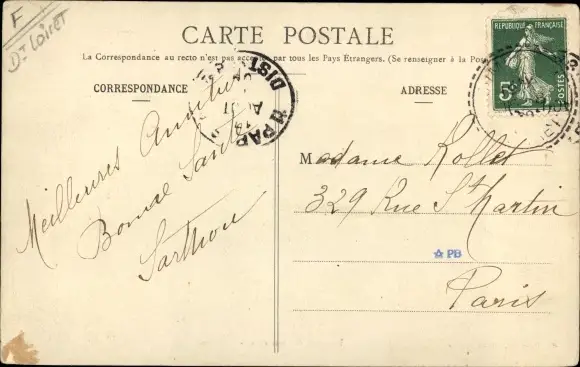 F
Dt Loiret
CARTE POSTALE
La Correspondance au recto n'est pas acceptée par tous les Pays Étrangers. (Se renseigner à la Poste)
CORRESPONDANCE
ADRESSE
REPUBLIQUE FRANÇAISE
5c
POSTES
PARIS
DIST
Meilleures Amitiés
Bonne Santé
Madame Rollet
329 Rue St Martin
PB
Paris